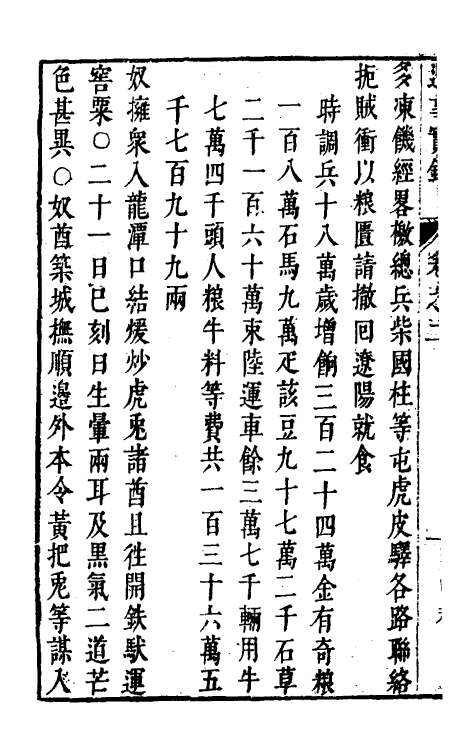 多凍饑經畧檄總兵柴國柱等屯虎皮驛各路聯絡
扼賊衝以粮匱請撤回遼陽就食
時調兵十八萬歲增餉三百二十四萬金有奇粮
一百八萬石馬九萬疋該豆九十七萬二千石草
二千一百六十萬束陸運車餘三萬七千輛用牛
七萬四千頭人粮牛料等費共一百三十六萬五
千七百九十九兩
奴擁衆入龍潭口結煖炒虎兎諸酋且徃開鉄馱運
窖粟○二十一日巳刻日生暈兩耳及黑氣二道芒
色甚異○奴酋築城撫順邊外本令黃把兎等謀入